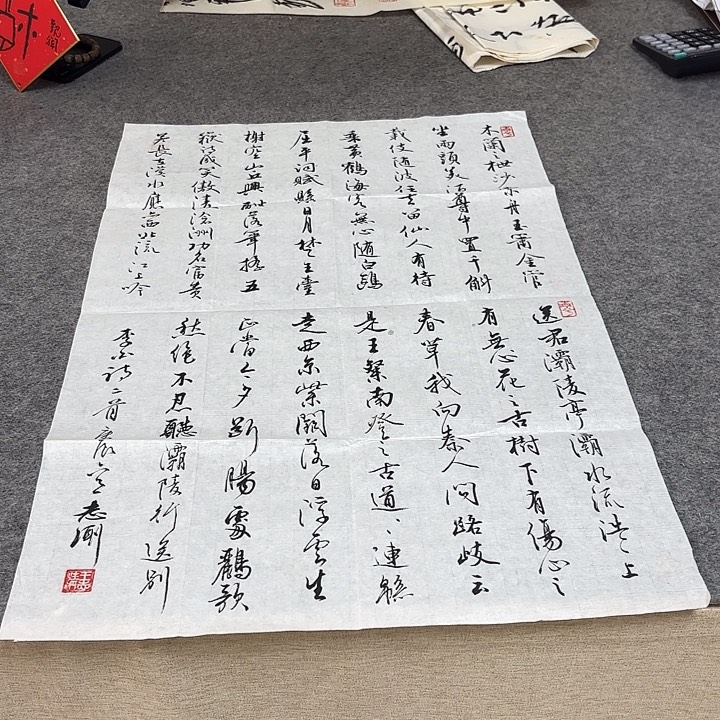 木蘭之枻沙棠舟玉簫金管
坐兩頭美酒尊中置千斛
載伎隨波任去留仙人有待
乘黃鶴海客無心隨白鷗
屈平詞賦懸日月楚王臺
榭空山丘興酣落筆搖五
嶽詩成笑傲凌滄洲功名富貴
若長在漢水應西北流 江上吟
送君灞陵亭灞水流浩〻上
有無花之古樹下有傷心之
春草我向秦人問路岐云
是王粲南登之古道〻連緜
走西京紫闕落日浮雲生
正當今夕斷腸處鸝歌
愁絕不忍聽灞陵行送別
李白詩二首 志刚